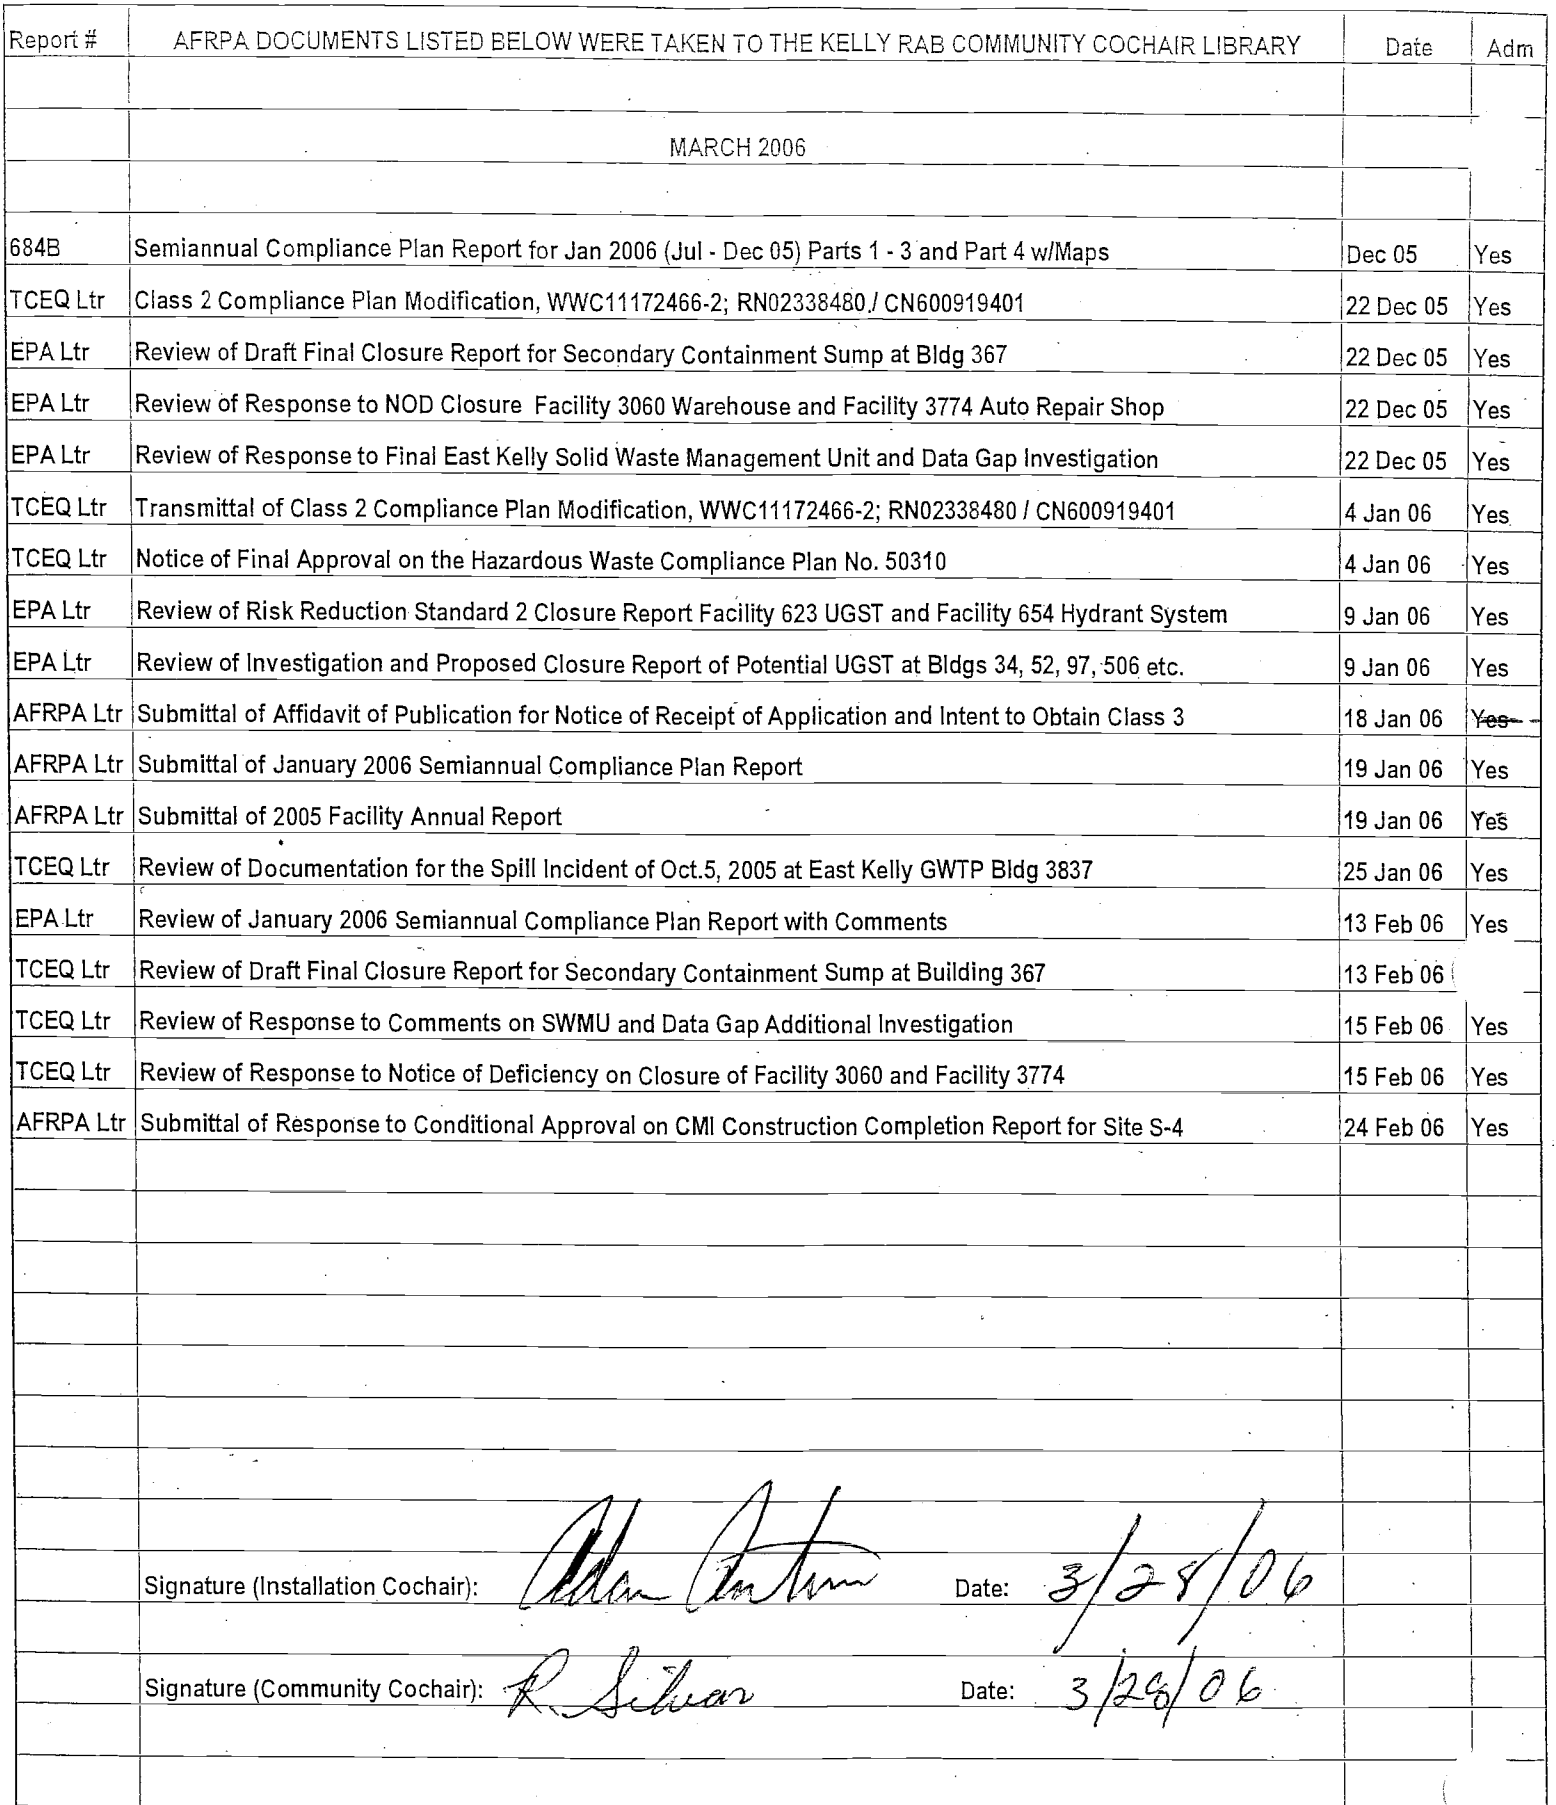 Report # AFRPA DOCUMENTS LISTED BELOW WERE TAKEN TO THE KELLY RAB COMMUNITY COCHAIR LIBRARY Date Adm
MARCH 2006
684B Semiannual Compliance Plan Report for Jan 2006 (Jul - Dec 05) Parts 1 - 3 and Part 4 w/Maps Dec 05 Yes
TCEQ Ltr Class 2 Compliance Plan Modification, WWC11172466-2; RN02338480./ CN600919401 22 Dec 05 Yes
EPA Ltr Review of Draft Final Closure Report for Secondary Containment Sump at Bldg 367 22 Dec 05 Yes
EPA Ltr Review of Response to NOD Closure Facility 3060 Warehouse and Facility 3774 Auto Repair Shop 22 Dec 05 Yes
EPA Ltr Review of Response to Final East Kelly Solid Waste Management Unit and Data Gap Investigation 22 Dec 05 Yes
TCEQ Ltr Transmittal of Class 2 Compliance Plan Modification, WWC11172466-2; RN02338480 / CN600919401 4 Jan 06 Yes
TCEQ Ltr Notice of Final Approval on the Hazardous Waste Compliance Plan No. 50310 4 Jan 06 Yes
EPA Ltr Review of Risk Reduction Standard 2 Closure Report Facility 623 UGST and Facility 654 Hydrant System 9 Jan 06 Yes
EPA Ltr Review of Investigation and Proposed Closure Report of Potential UGST at Bldgs 34, 52, 97, 506 etc. 9 Jan 06 Yes
AFRPA Ltr Submittal of Affidavit of Publication for Notice of Receipt of Application and Intent to Obtain Class 3 18 Jan 06 Yes
AFRPA Ltr Submittal of January 2006 Semiannual Compliance Plan Report 19 Jan 06 Yes
AFRPA Ltr Submittal of 2005 Facility Annual Report 19 Jan 06 Yes
TCEQ Ltr Review of Documentation for the Spill Incident of Oct.5, 2005 at East Kelly GWTP Bldg 3837 25 Jan 06 Yes
EPA Ltr Review of January 2006 Semiannual Compliance Plan Report with Comments 13 Feb 06 Yes
TCEQ Ltr Review of Draft Final Closure Report for Secondary Containment Sump at Building 367 13 Feb 06
TCEQ Ltr Review of Response to Comments on SWMU and Data Gap Additional Investigation 15 Feb 06 Yes
TCEQ Ltr Review of Response to Notice of Deficiency on Closure of Facility 3060 and Facility 3774 15 Feb 06 Yes
AFRPA Ltr Submittal of Response to Conditional Approval on CMI Construction Completion Report for Site S-4 24 Feb 06 Yes
Signature (Installation Cochair): Adam Date: 3/28/06
Signature (Community Cochair): R. Silvas Date: 3/28/06